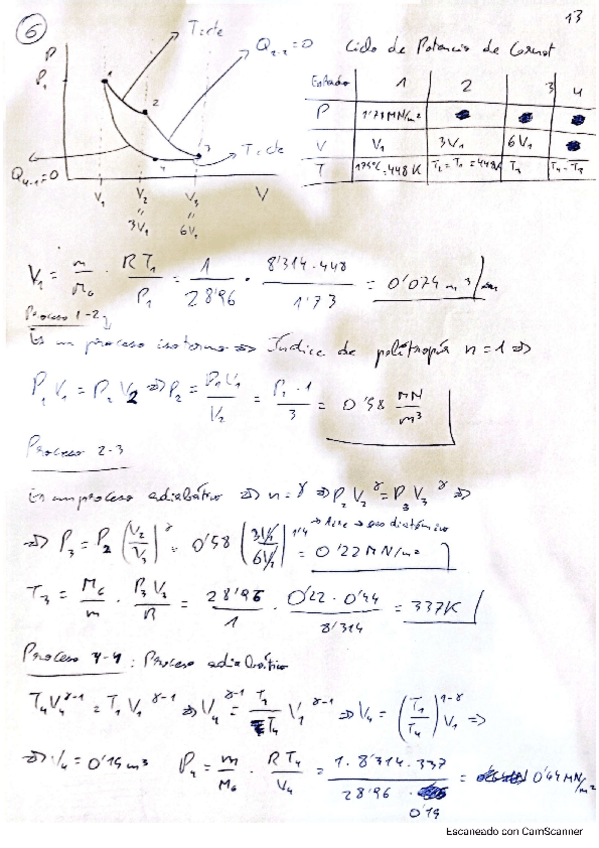 13
6
T:cte
Q₂₋₃=0
Ciclo de Potencia de Carnot
P
P₁
1
2
3
4
T:cte
Q₄₋₁=0
V₁ V₂ V₃ V
" "
3V₁ 6V₁
Estado 1 2 3 4
P 1'73 MN/m²
V V₁ 3V₁ 6V₁
T 175ºC=448 K T₂=T₁=448K T₃ T₄=T₃
V₁ = m/M₆ · RT₁/P₁ = 1/28'96 · 8'314·448/1'73 = 0'074 m³
Proceso 1-2
Es un proceso isotermo ⇒ Índice de politropía n=1 ⇒
P₁V₁ = P₂V₂ ⇒ P₂ = P₁V₁/V₂ = P₁·1/3 = 0'58 MN/m³
Proceso 2-3
Es un proceso adiabático ⇒ n=γ ⇒ P₂V₂^γ = P₃V₃^γ ⇒
→ Aire → gas diatómico
⇒ P₃ = P₂ (V₂/V₃)^γ = 0'58 (3V₁/6V₁)^1'4 = 0'22 MN/m²
T₃ = M₆/m · P₃V₃/R = 28'96/1 · 0'22·0'44/8'314 = 337K
Proceso 4: Proceso adiabático
T₄V₄^γ-1 = T₁V₁^γ-1 ⇒ V₄^γ-1 = T₁/T₄ V₁^γ-1 ⇒ V₄ = (T₁/T₄)^1-γ V₁ ⇒
⇒ V₄ = 0'15 m³ P₄ = m/M₆ · RT₄/V₄ = 1·8'314·337/28'96· = 0'44 MN/m²
0'19
Escaneado con CamScanner